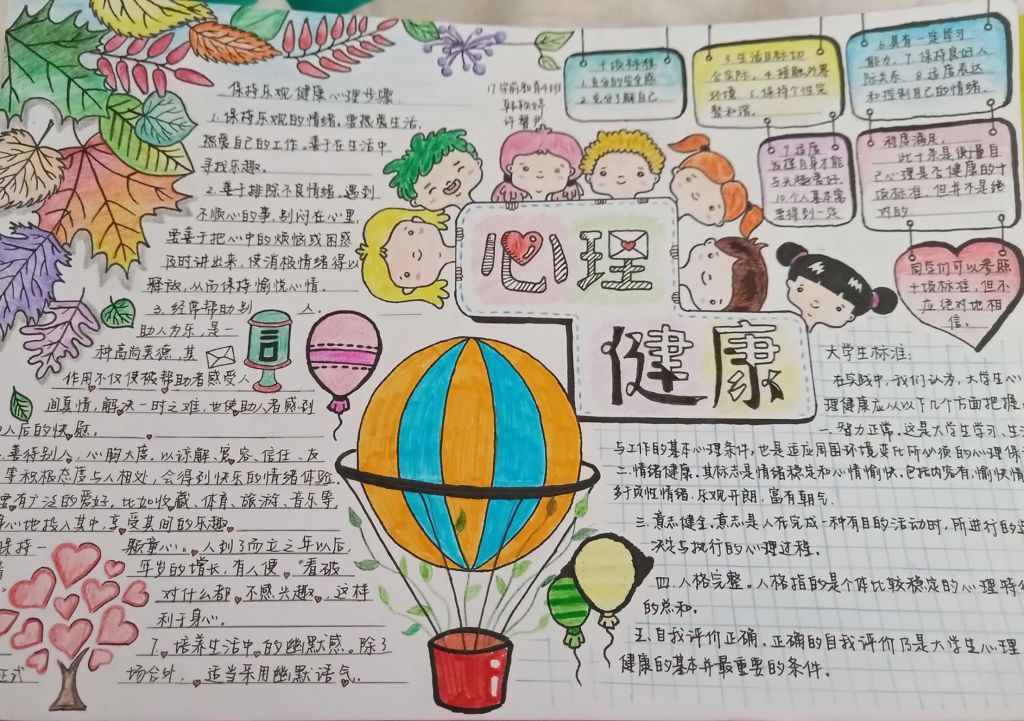 保持乐观健康心理步骤
1.保持乐观的情绪,要热爱生活,
热爱自己的工作。善于在生活中
寻找乐趣。
2.善于排除不良情绪,遇到
不顺心的事,别闷在心里,
要善于把心中的烦恼或困惑
及时讲出来,使消极情绪得以
释放,从而保持愉悦心情。
3.经常帮助别人。
助人为乐,是一
种高尚美德,其
作用不仅使被帮助者感受人
间真情,解决一时之难,也使助人者感到
助人后的快慰。
善待别人,心胸大度,以谅解、宽容、信任、友
等积极态度与人相处,会得到快乐的情绪体验.
要有广泛的爱好,比如收藏、体育、旅游、音乐等
身心地投入其中,享受其间的乐趣。
保持一颗童心。人到了而立之年以后,
年岁的增长,有人便。"看破
对什么都不感兴趣,这样
利于身心。
7.培养生活中的幽默感。除了
正式场合外,适当采用幽默语气.
十项标准
1.充分的安全感
2.充分了解自己
3.生活目标切
合实际. 4.接触外界
环境 5.保持个性完
整和谐.
6.具有一定学习
能力. 7.保持良好人
际关系 8.适度表达
和控制自己的情绪.
9.适度
发挥自身才能
与兴趣爱好.
10.个人基本需
要得到一定
程度满足.
此十条是衡量自
己心理是否健康的十
项标准,但并不是绝
对的
同学们可以参照
十项标准,但不
应绝对地相
信.
心理
健康
大学生标准:
在实践中,我们认为,大学生心
理健康应从以下几个方面把握.
一.智力正常,这是大学生学习、生活
与工作的基本心理条件,也是适应周围环境变化所必须的心理保
二.情绪健康.其标志是情绪稳定和心情愉快.包括内容有,愉快情
多于负性情绪.乐观开朗,富有朝气.
三.意志健全.意志是人在完成一种有目的活动时,所进行的选
决定与执行的心理过程.
四.人格完整.人格指的是个体比较稳定的心理特征
的总和.
五.自我评价正确.正确的自我评价乃是大学生心理
健康的基本并最重要的条件.